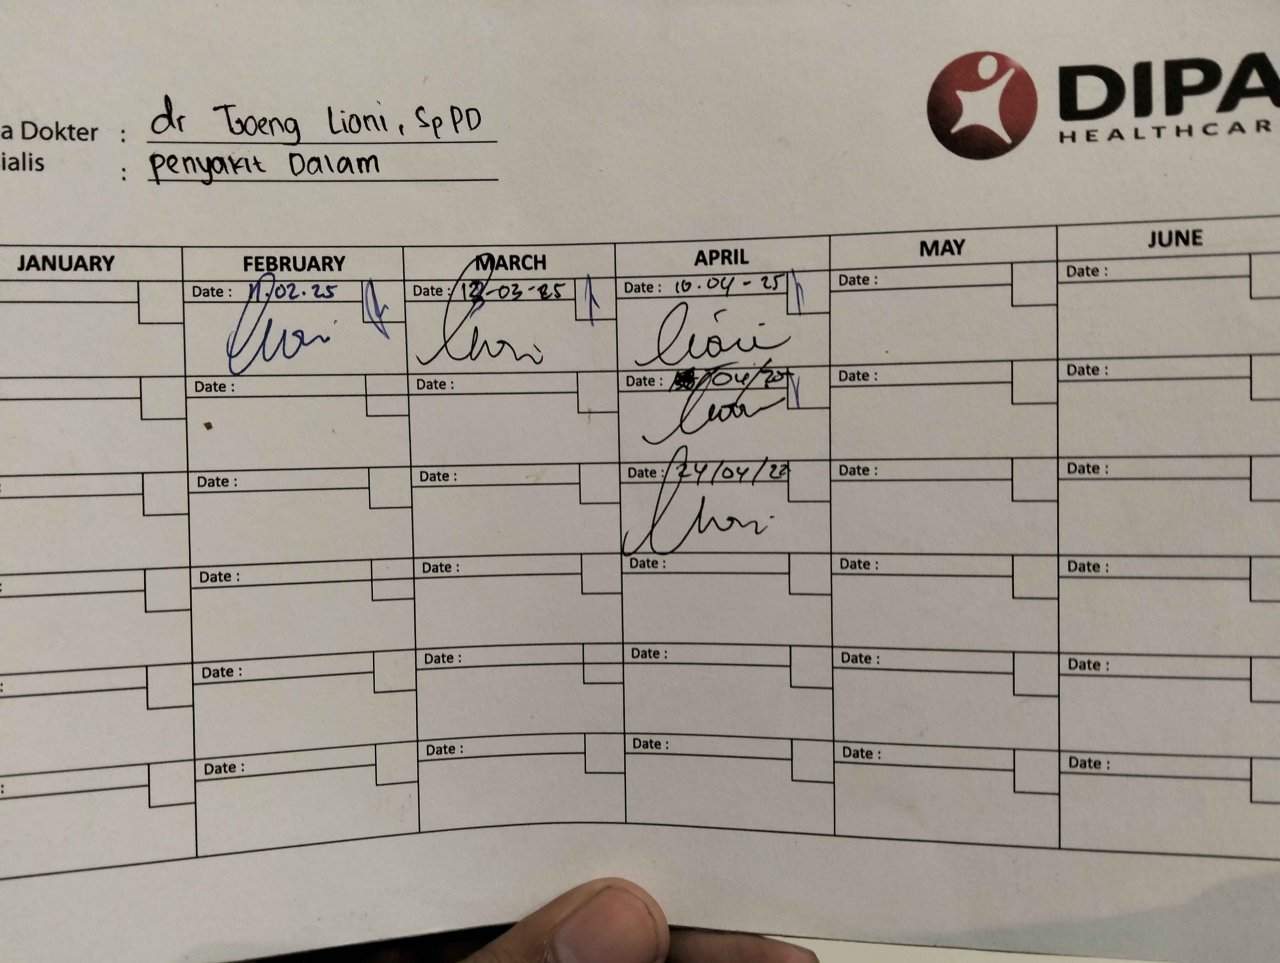 DIPA
HEALTHCAR
a Dokter : dr Tjoeng Lioni, SpPD
ialis : Penyakit Dalam
JANUARY FEBRUARY MARCH APRIL MAY JUNE
Date : 11.02.25 Date : -03-25 Date : 10.04-25 Date : Date :
Lioni Lioni Lioni
Date : Date : Date : /04/ Date : Date :
Lioni
: Date : Date : Date : 24/04/ Date : Date :
Lioni
: Date : Date : Date : Date : Date :
: Date : Date : Date : Date : Date :
: Date : Date : Date : Date : Date :